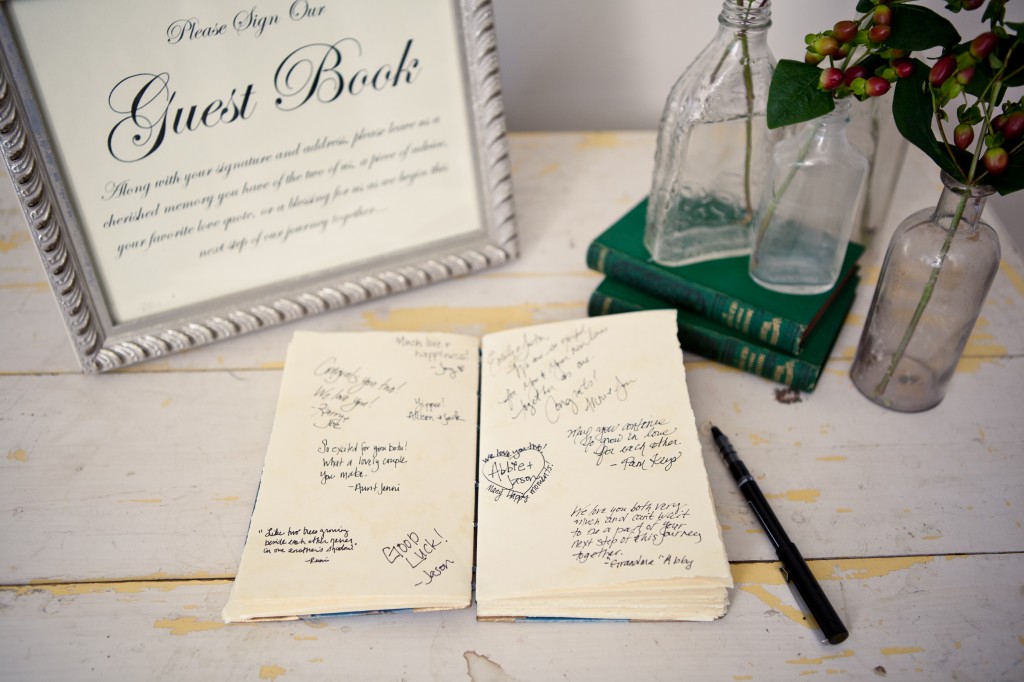 Please Sign Our
Guest Book
Along with your signature and address, please leave us a
cherished memory you have of the two of us, a piece of advice,
your favorite love quote, or a blessing for us as we begin this
next step of our journey together...
Much love +
happiness!
Congrats you two!
We love you!
Yippee!
So excited for you both!
What a lovely couple
you make.
- Aunt Jenni
"Like two trees growing
beside each other never
in one another's shadow"
Goob
Luck!
- Jason
We are so excited
for you + your new lives
together as one.
Congrats!
May you continue
to grow in love
for each other
- Pam Keys
We love you two!
Abbie +
Jason
Many happy moments!
We love you both very
much and can't wait
to be a part of your
next step of this journey
together.
- Grandma "Abby